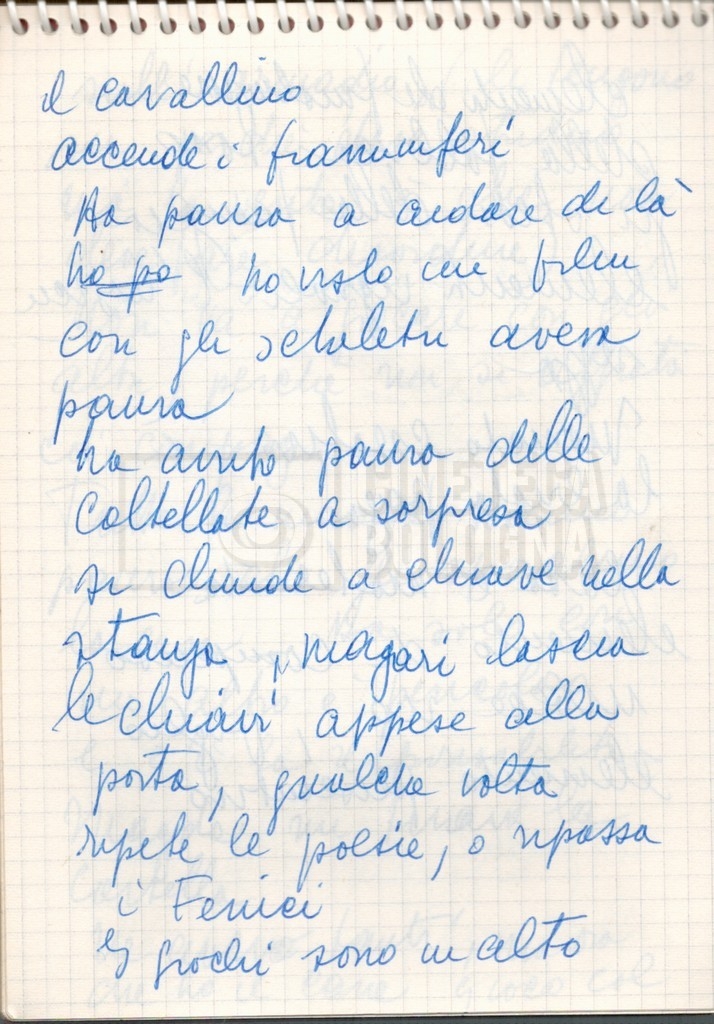 il cavallino
accende i frammiferi
Ha paura a andare di là
ha pa ha visto un film
con gli scheletri aveva
paura
ha avuto paura delle
coltellate a sorpresa
si chiude a chiave nella
stanza, magari lascia
le chiavi appese alla
porta, qualche volta
ripete le poesie, o ripassa
i Fenici
giochi sono in alto
CINETECA
BOLOGNA